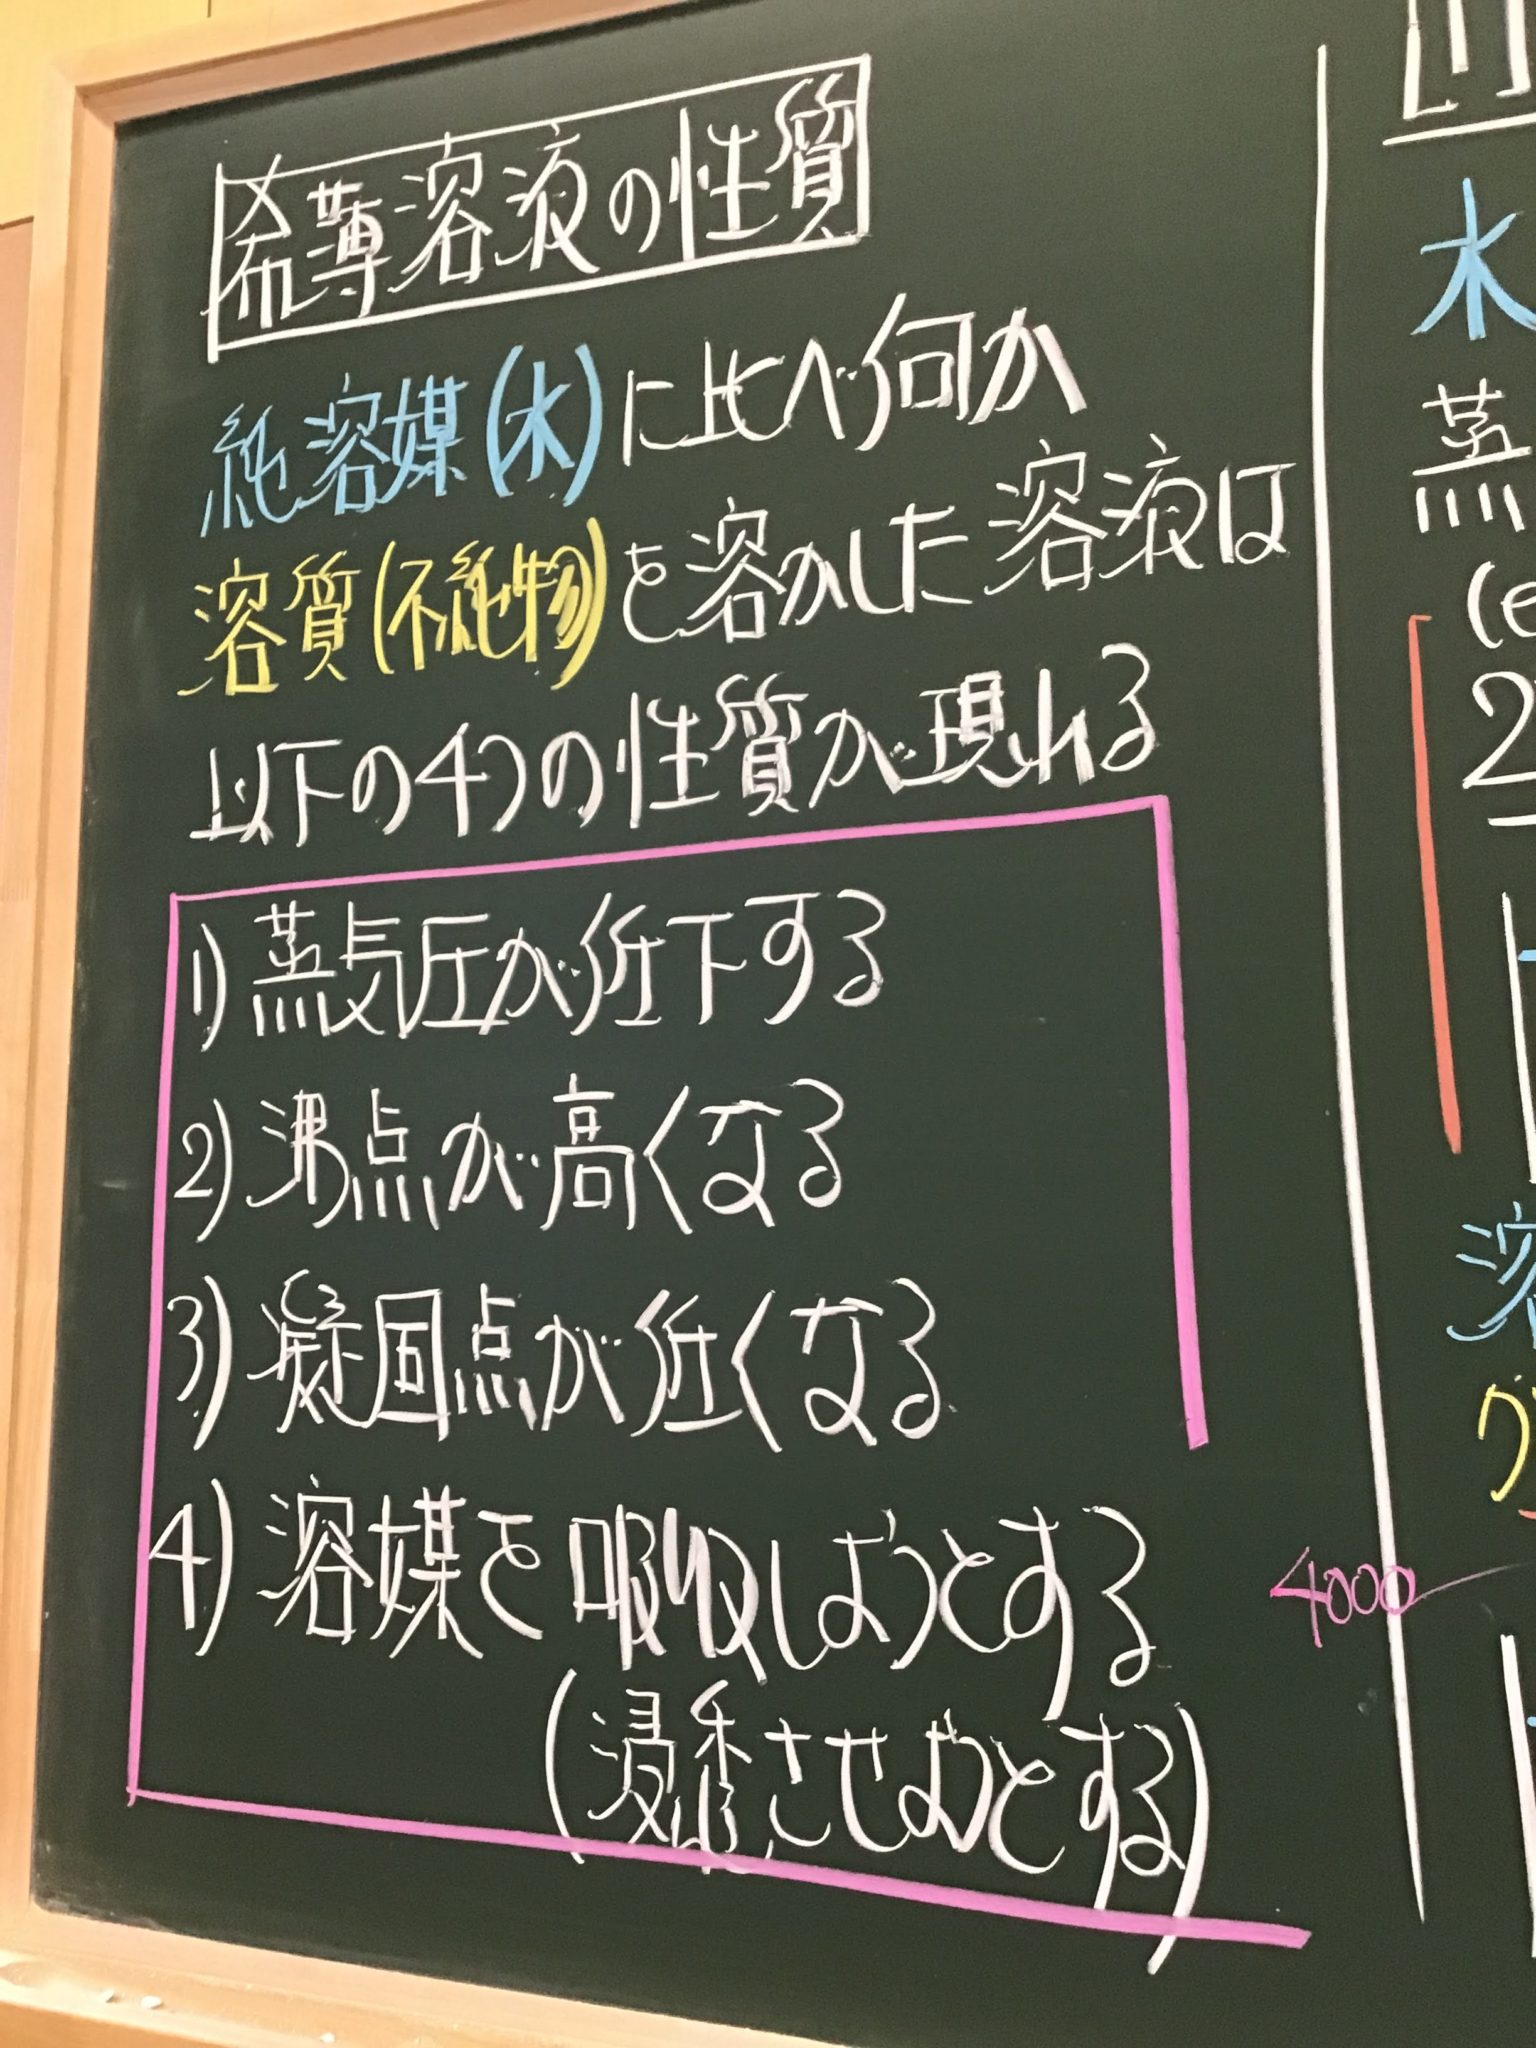 希薄溶液の性質
純溶媒(水)に比べ何か
溶質(不純物)を溶かした溶液は
以下の4つの性質が現れる
1) 蒸気圧が低下する
2) 沸点が高くなる
3) 凝固点が低くなる
4) 溶媒を吸収しようとする
(浸透させようとする)
水
蒸
(e
2
溶
4000